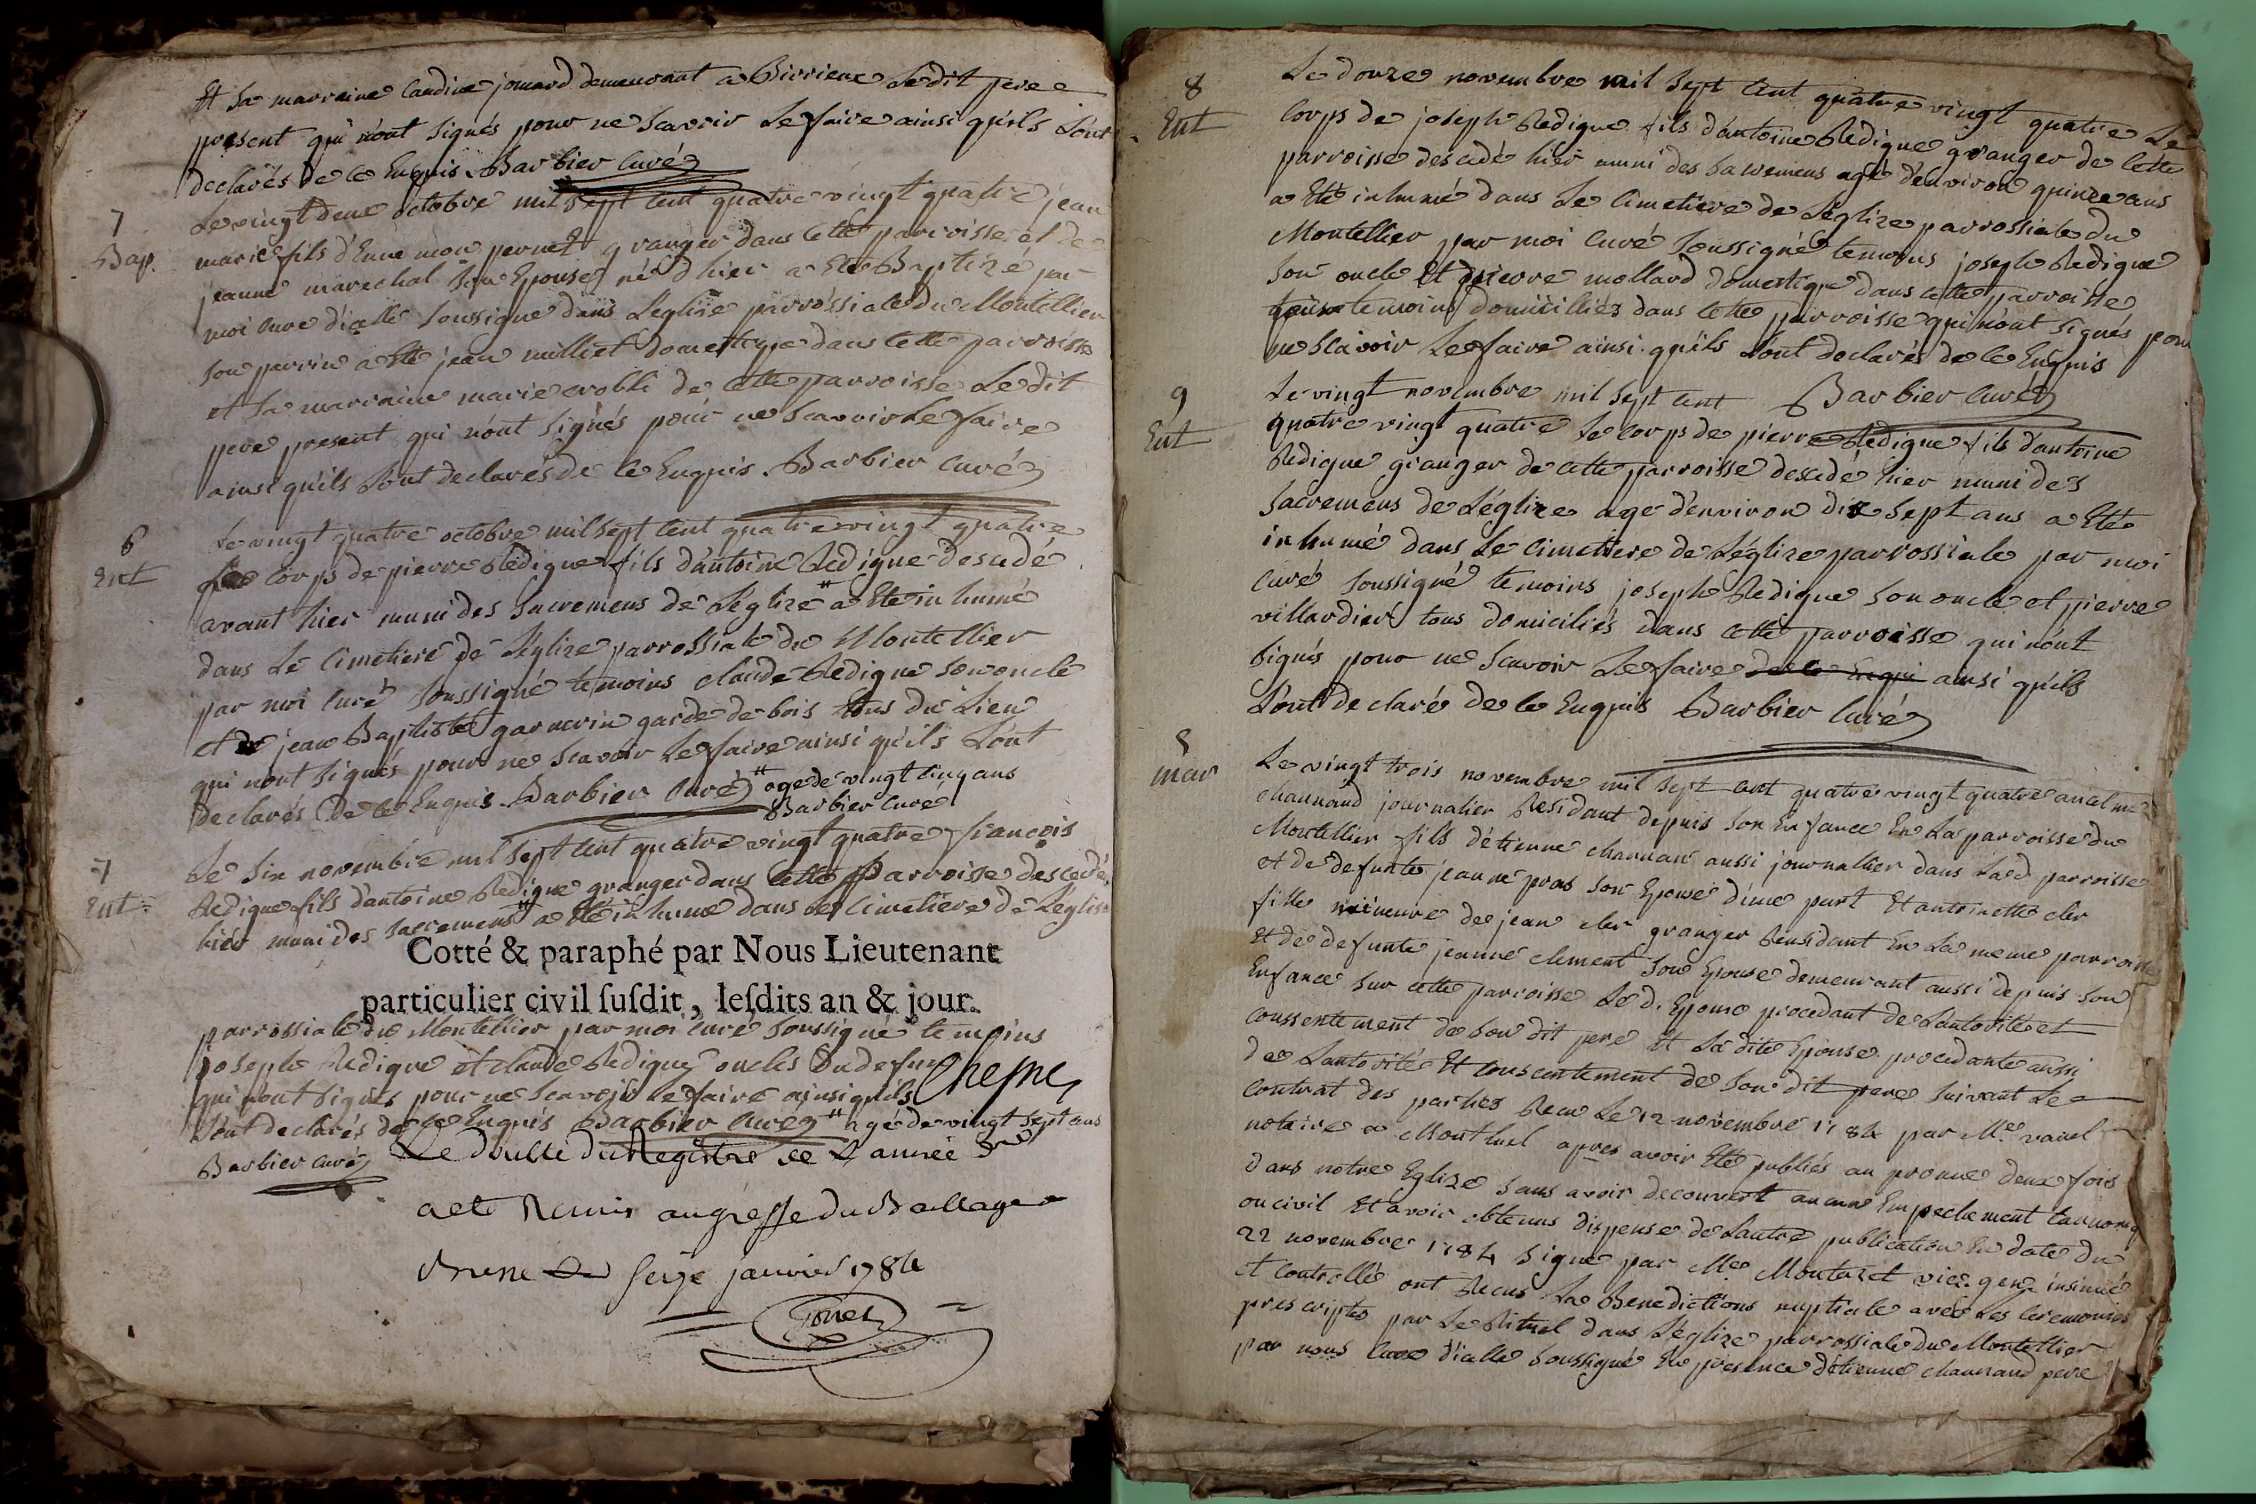 Et sa marraine Claudine jomard demeurant a Birrieux Ledit pere
present qui n'ont signés pour ne scavoir Le faire ainsi qu'ils L'ont
declarés de ce Enquis Barbier Curé
7
Bap.
Le vingt deux octobre mil sept cent quatre vingt quatre jean
marie fils d'Enne mon pernet granger dans cette parroisse et de
jeanne marechal son Epouse né d'hier a Eté Baptizé par
moi curé d'icelle soussigné dans L'eglise parrossiale du Montellier
son parrin a Eté jean milliet domestique dans cette parroisse
et sa marraine marie de cette parroisse Ledit
pere present qui n'ont signés pour ne scavoir Le faire
ainsi qu'ils L'ont declarés de ce Enquis. Barbier curé
6
Ent
Le vingt quatre octobre mil sept cent quatre vingt quatre
Le Corps de pierre Redigue fils d'antoine Redigue descedé
avant hier muni des sacremens de L'églize # a Eté inhumé
dans Le cimetiere de L'églize parrossiale du Montellier
par moi curé soussigné temoins claude Redigue son oncle
et de jean Baptiste garnerin garde de bois tous du Lieu
qui n'ont signés pour ne scavoir Le faire ainsi qu'ils L'ont
declarés De ce Enquis Barbier Curé # agé de vingt cinq ans
Barbier curé
7
Ent.
Le six novembre mil sept cent quatre vingt quatre françois
Redigue fils d'antoine Redigue granger dans cette Parroisse descedé
hier muni des sacremens # a Eté inhumé dans Le cimetiere de L'églize
Cotté & paraphé par Nous Lieutenant
particulier civil ſuſdit, leſdits an & jour.
parrossiale du Montellier par moi curé soussigné temoins
joseph Redigue et claude Redigue oncles Du defun
qui n'ont signés pour ne scavoir Le faire ainsi qu'ils
Chesne
L'ont declarés de ce Enquis Barbier Curé # agé de vingt sept ans
Barbier curé
Le double du Registre de L'année
a eté Remis au greffe du Baillage
de seize janvier 1784
8
Ent
Le douze novembre mil sept cent quatre vingt quatre Le
Corps de joseph Redigue fils d'antoine Redigue granger de cette
parroisse descedé hier muni des sacremens agé d'environ quinze ans
a Eté inhumé dans Le Cimetiere de L'églize parrossiale du
Montellier par moi curé soussigné temoins joseph Redigue
son oncle Et pierre mollard domestique dans cette parroisse
temoins domiciliés dans cette parroisse qui n'ont signés pour
ne scavoir Le faire ainsi qu'ils L'ont declarés de ce Enquis
Barbier Curé
9
Ent
Le vingt novembre mil sept cent
quatre vingt quatre Le Corps de pierre Redigue fils d'antoine
Redigue granger de cette parroisse descedé hier muni des
sacremens de L'églize agé d'environ dix sept ans a Eté
inhumé dans Le Cimetiere de L'églize parrossiale par moi
curé soussigné temoins joseph Redigue son oncle et pierre
villardier tous domiciliés dans cette parroisse qui n'ont
signés pour ne scavoir Le faire de ce Enqui ainsi qu'ils
L'ont declaré de ce Enquis Barbier Curé
5
mar
Le vingt trois novembre mil sept cent quatre vingt quatre ancelme
channaud journalier Residant depuis son Enfance En La parroisse du
Montellier fils d'étienne channau aussi journallier dans La d. parroisse
et de defunte jeanne pras son Epouse d'une part Et antoinette cler
fille mineure de jean cler granger Residant En La meme parroisse
Et de defunte jeanne clement son Epouse demeurant aussi depuis son
Enfance sur cette parroisse Le d. Epoux procedant de L'autorité et
conssentement de son dit pere Et La dite Epouse procedante aussi
de L'autorité Et conscentement de son dit pere suivant Le
contrat des parties Recu Le 12 novembre 1784 par Me
notaire a Montluel apres avoir Eté publiés au prone deux fois
dans notre Eglize sans avoir decouvert aucun Empechement
ou civil Et avoir obtenus dispense de L'autre publication En date du
22 novembre 1784 signé par Me vic. gen. insinué
et controllé ont Recus La Benedictions nuptiale avec Les ceremonies
prescriptes par Le Rituel dans L'églize parrossiale du Montellier
par nous Curé d'icelle soussigné En presence d'étienne channaud pere